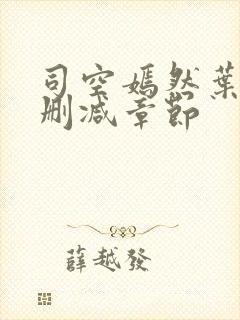 司空嫣然葉
删减章節
薛越發